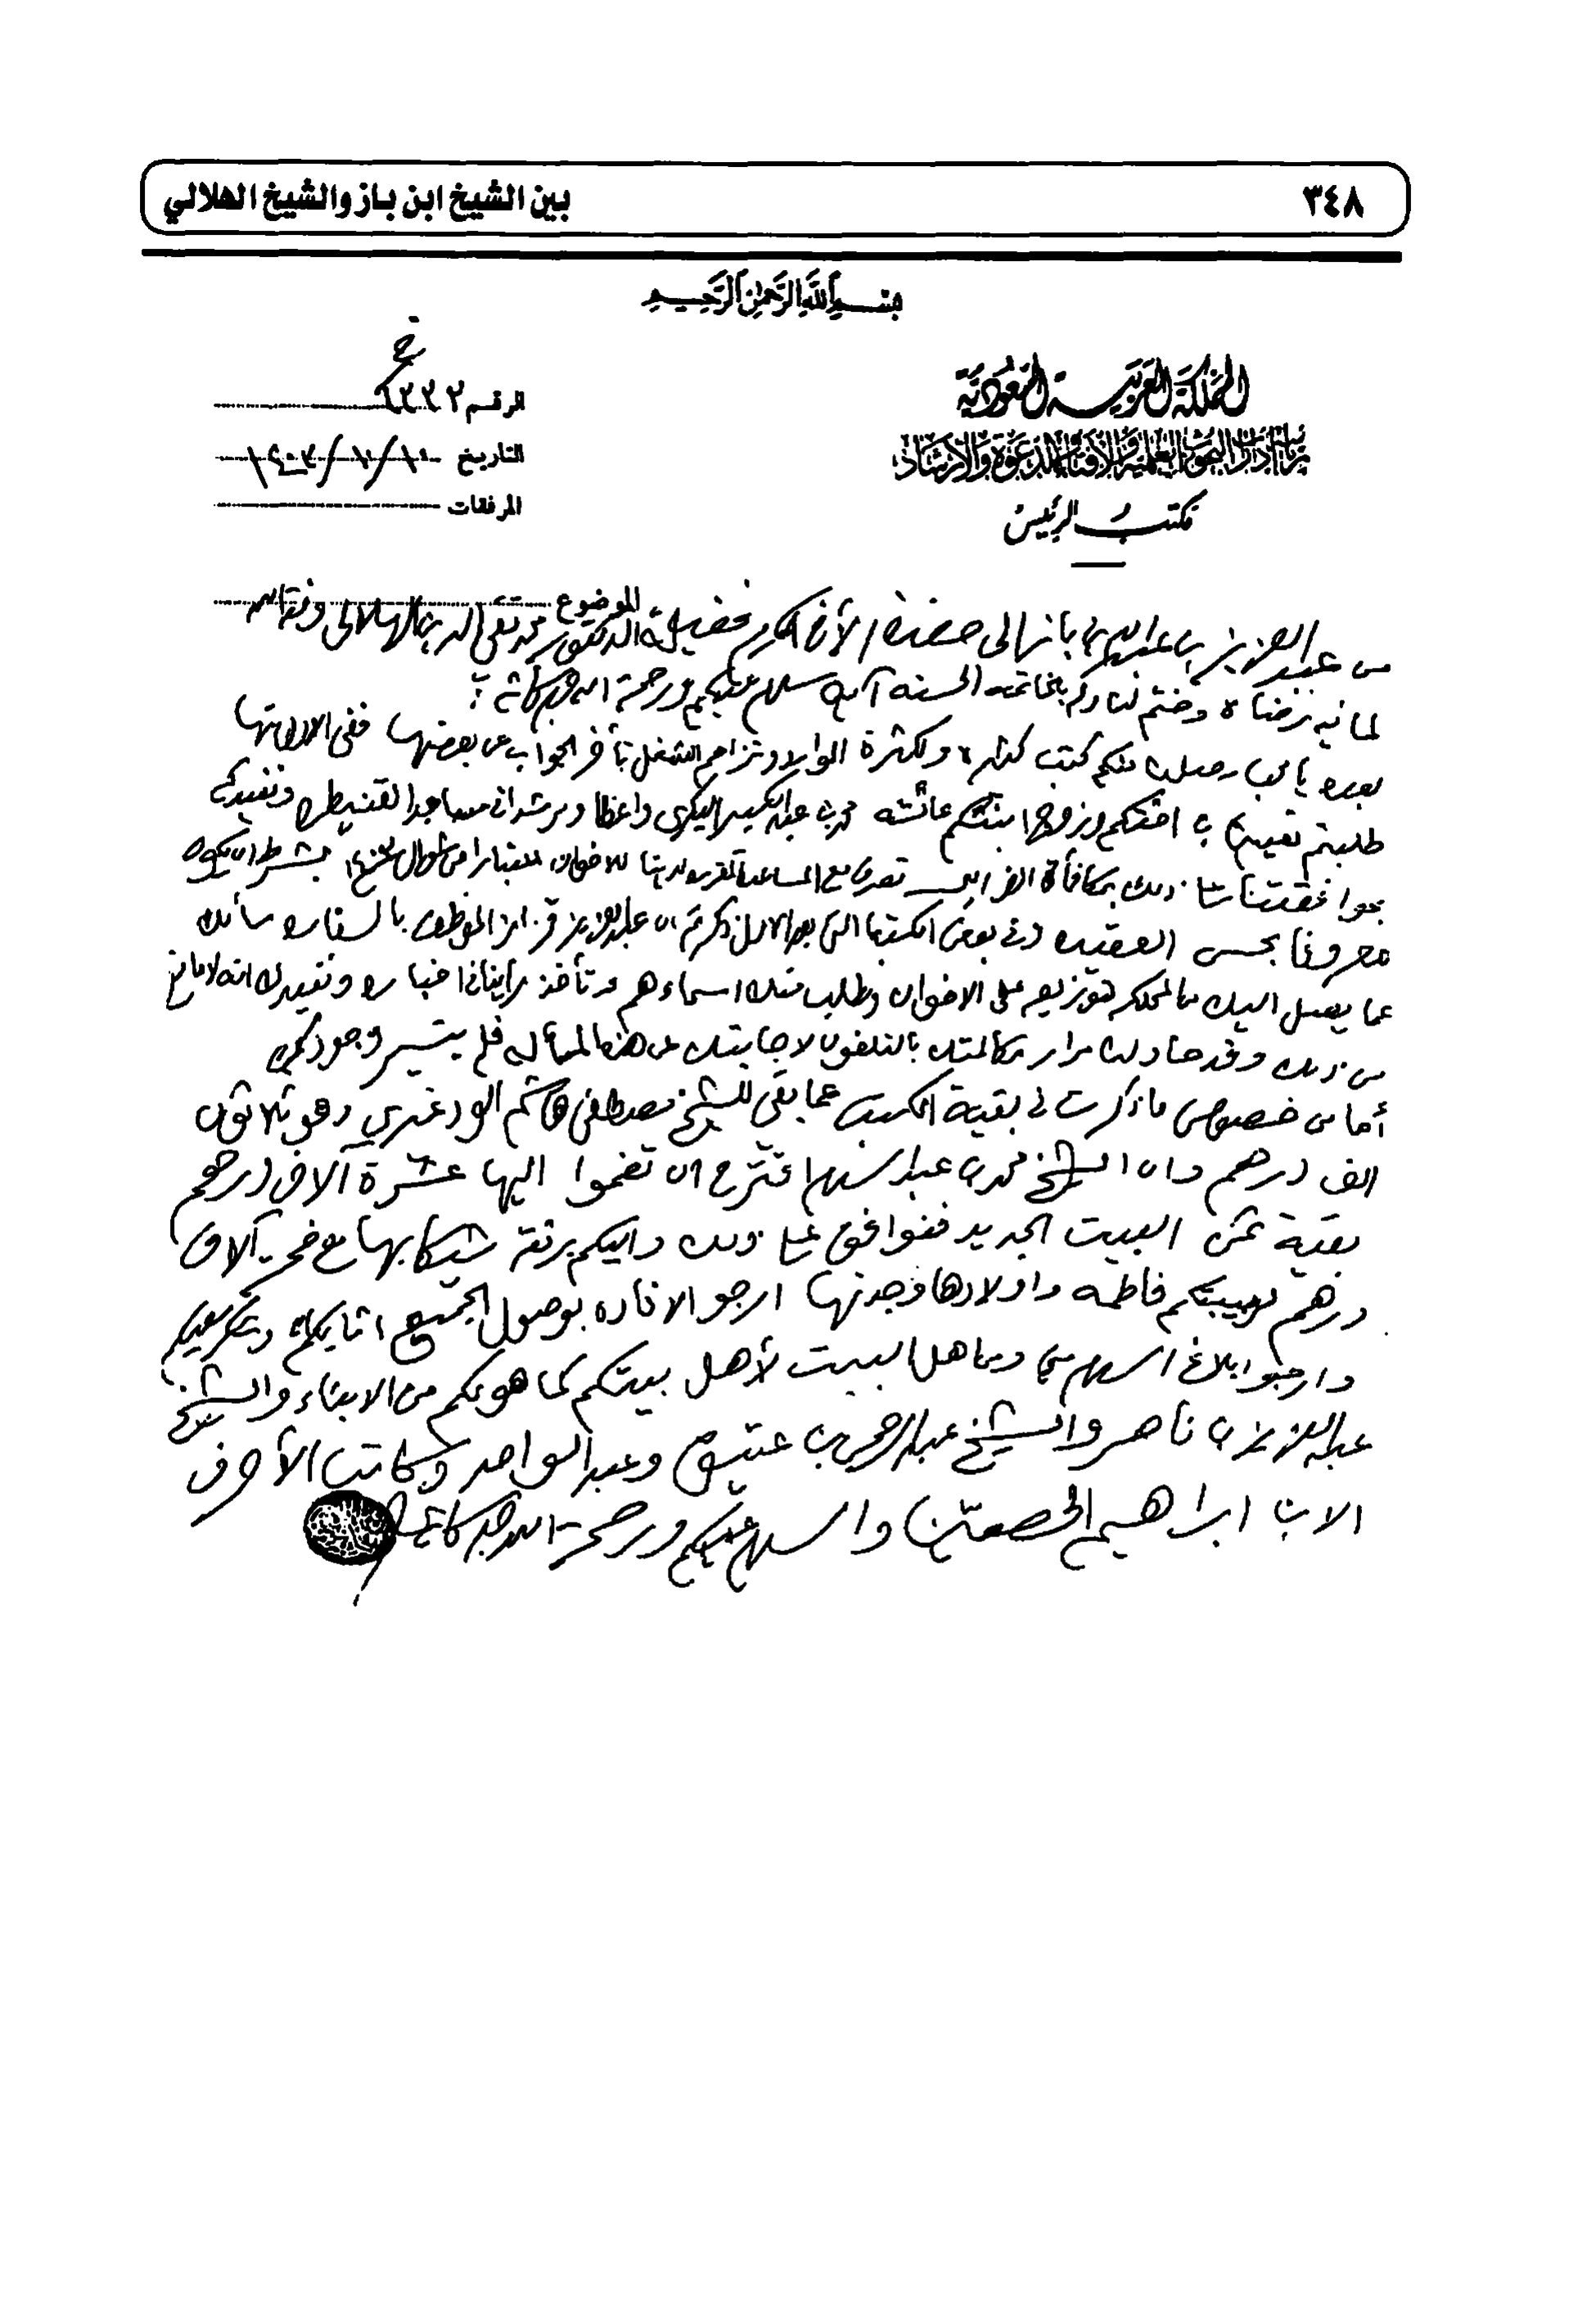 ٣٤٨
بين الشيخ ابن باز والشيخ الهلالي
بسم الله الرحمن الرحيم
المملكة العربية السعودية
رئاسة إدارات البحوث العلمية والإفتاء والدعوة والإرشاد
مكتب الرئيس
الرقم ٦٣٣٢ خ
التاريخ
المرفقات
الموضوع
من عبد العزيز بن عبد الله بن باز الى حضرة الأخ المكرم فضيلة الدكتور محمد تقي الدين الهلالي وفقه الله
لما فيه رضاه وختم لنا وله بالخاتمة الحسنه آمين سلام عليكم ورحمة الله وبركاته
بعده يا محب وصلت منكم كتب كثيره ولكثرة الوارد وتزاحم الشغل تأخر الجواب عن بعضها ففي الأول منها
طلبتم تعيين ابن اختكم وزوج ابنتكم عائشه محمد بن عبد الكبير البكري واعظا ومرشدا في مساجد القنيطره ونفيدكم
بموافقتنا على ذلك بمكافأة الف تصرف مع المساعدة المقرره لدينا للاخوان اعتبارا من شوال بشرط ان يكون
معروفا بحسن العقيده وفي بعض الكتب التي بعد الاول ذكرتم ان عبد العزيز الموظف بالسفاره سألك
عما يصل اليك من المملكه لتوزيعه على الاخوان وطلب منك اسماءهم وتأخذ رأينا في اخباره ونفيدك انه لا مانع
من ذلك وقد حاولت مرارا مكالمتك بالتلفون لاجابتك عن هذه المسأله فلم يتيسر وجودكم
أما من خصوص ما ذكرت في بقية الكتب عما بقي للشيخ مصطفى هاشم الودغيري وهو ثلاثون
الف درهم وان الشيخ محمد بن عبد السلام اقترح ان تضموا اليها عشرة آلاف درهم
بقية ثمن البيت الجديد فنوافق على ذلك واليكم برفقه شيكا بها مع خمسة آلاف
درهم لربيبتكم فاطمه واولادها وجدتها ارجو الافاده بوصول الجميع اثابكم الله وشكر سعيكم
وارجو ابلاغ السلام مني ومن اهل البيت لأهل بيتكم كما هو لكم من الابناء والشيخ
عبد العزيز بن ناصر والشيخ عبد الرحمن بن عتيق وعبد الواحد وكاتب الأحرف
الابن ابراهيم الحصين والسلام عليكم ورحمة الله وبركاته